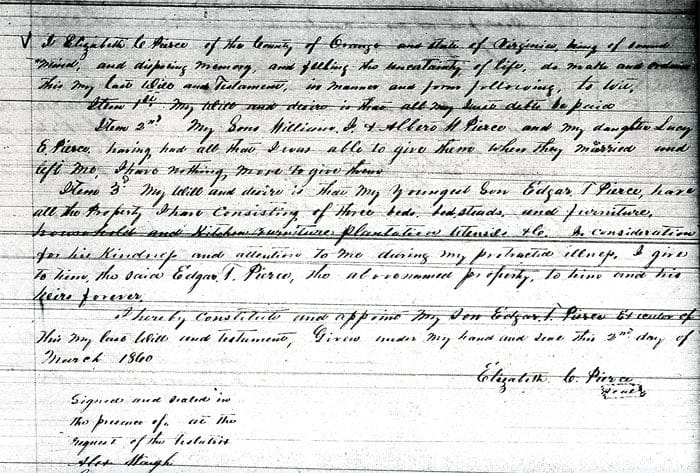 I Elizabeth C Pierce of the County of Orange and state of Virginia, being of sound
mind, and disposing memory, and feeling the uncertainty of life, do make and ordain
this my last Will and Testament, in manner and form following, to Wit,
Item 1st My Will and desire is that all my just debts be paid
Item 2nd My Sons William J. & Albert H Pierce and my daughter Lucy
E. Pierce, having had all that I was able to give them when they married and
left me, I have nothing more to give them
Item 3d My Will and desire is that my youngest Son Edgar T Pierce, have
all the Property I have consisting of three beds, bedsteads, and furniture,
household and Kitchen Furniture Plantation Utensils &c. In consideration
for his Kindness and attention to me during my protracted illness, I give
to him, the said Edgar T. Pierce, the above named property, to him and his
heirs forever.
I hereby constitute and appoint my Son Edgar T. Pierce Executor of
this my last Will and testament, Given under my hand and seal this 2nd day of
March 1860
Elizabeth C. Pierce
seal
Signed and sealed in
the presence of, at the
request of the testatrix
Alex Waugh